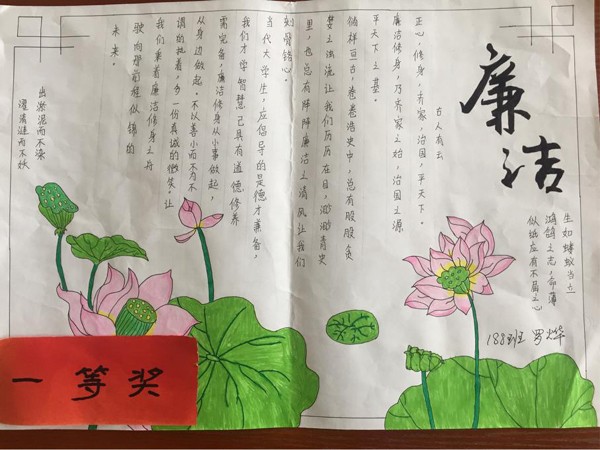 廉洁
生如蝼蚁当立
鸿鹄之志，命薄
似纸应有不屈之心
188班 罗烨
古人有云
正心，修身，齐家，治国，平天下。
廉洁修身，乃齐家之始，治国之源
平天下之基。
倘祥亘古，卷卷浩史中，总有股股贪
婪之浊流让我们历历在目，泱泱青史
里，也总有阵阵廉洁之清风让我们
刻骨铭心。
当代大学生，应倡导的是德才兼备，
我们才学智慧已具有道德修养
需完备，廉洁修身从小事做起，
从身边做起。不以善小而不为不
调的执着，多一份真诚的微笑。让
我们乘着廉洁修身之舟
驶向那前程似锦的
未来。
出淤泥而不染
濯清涟而不妖
一等奖